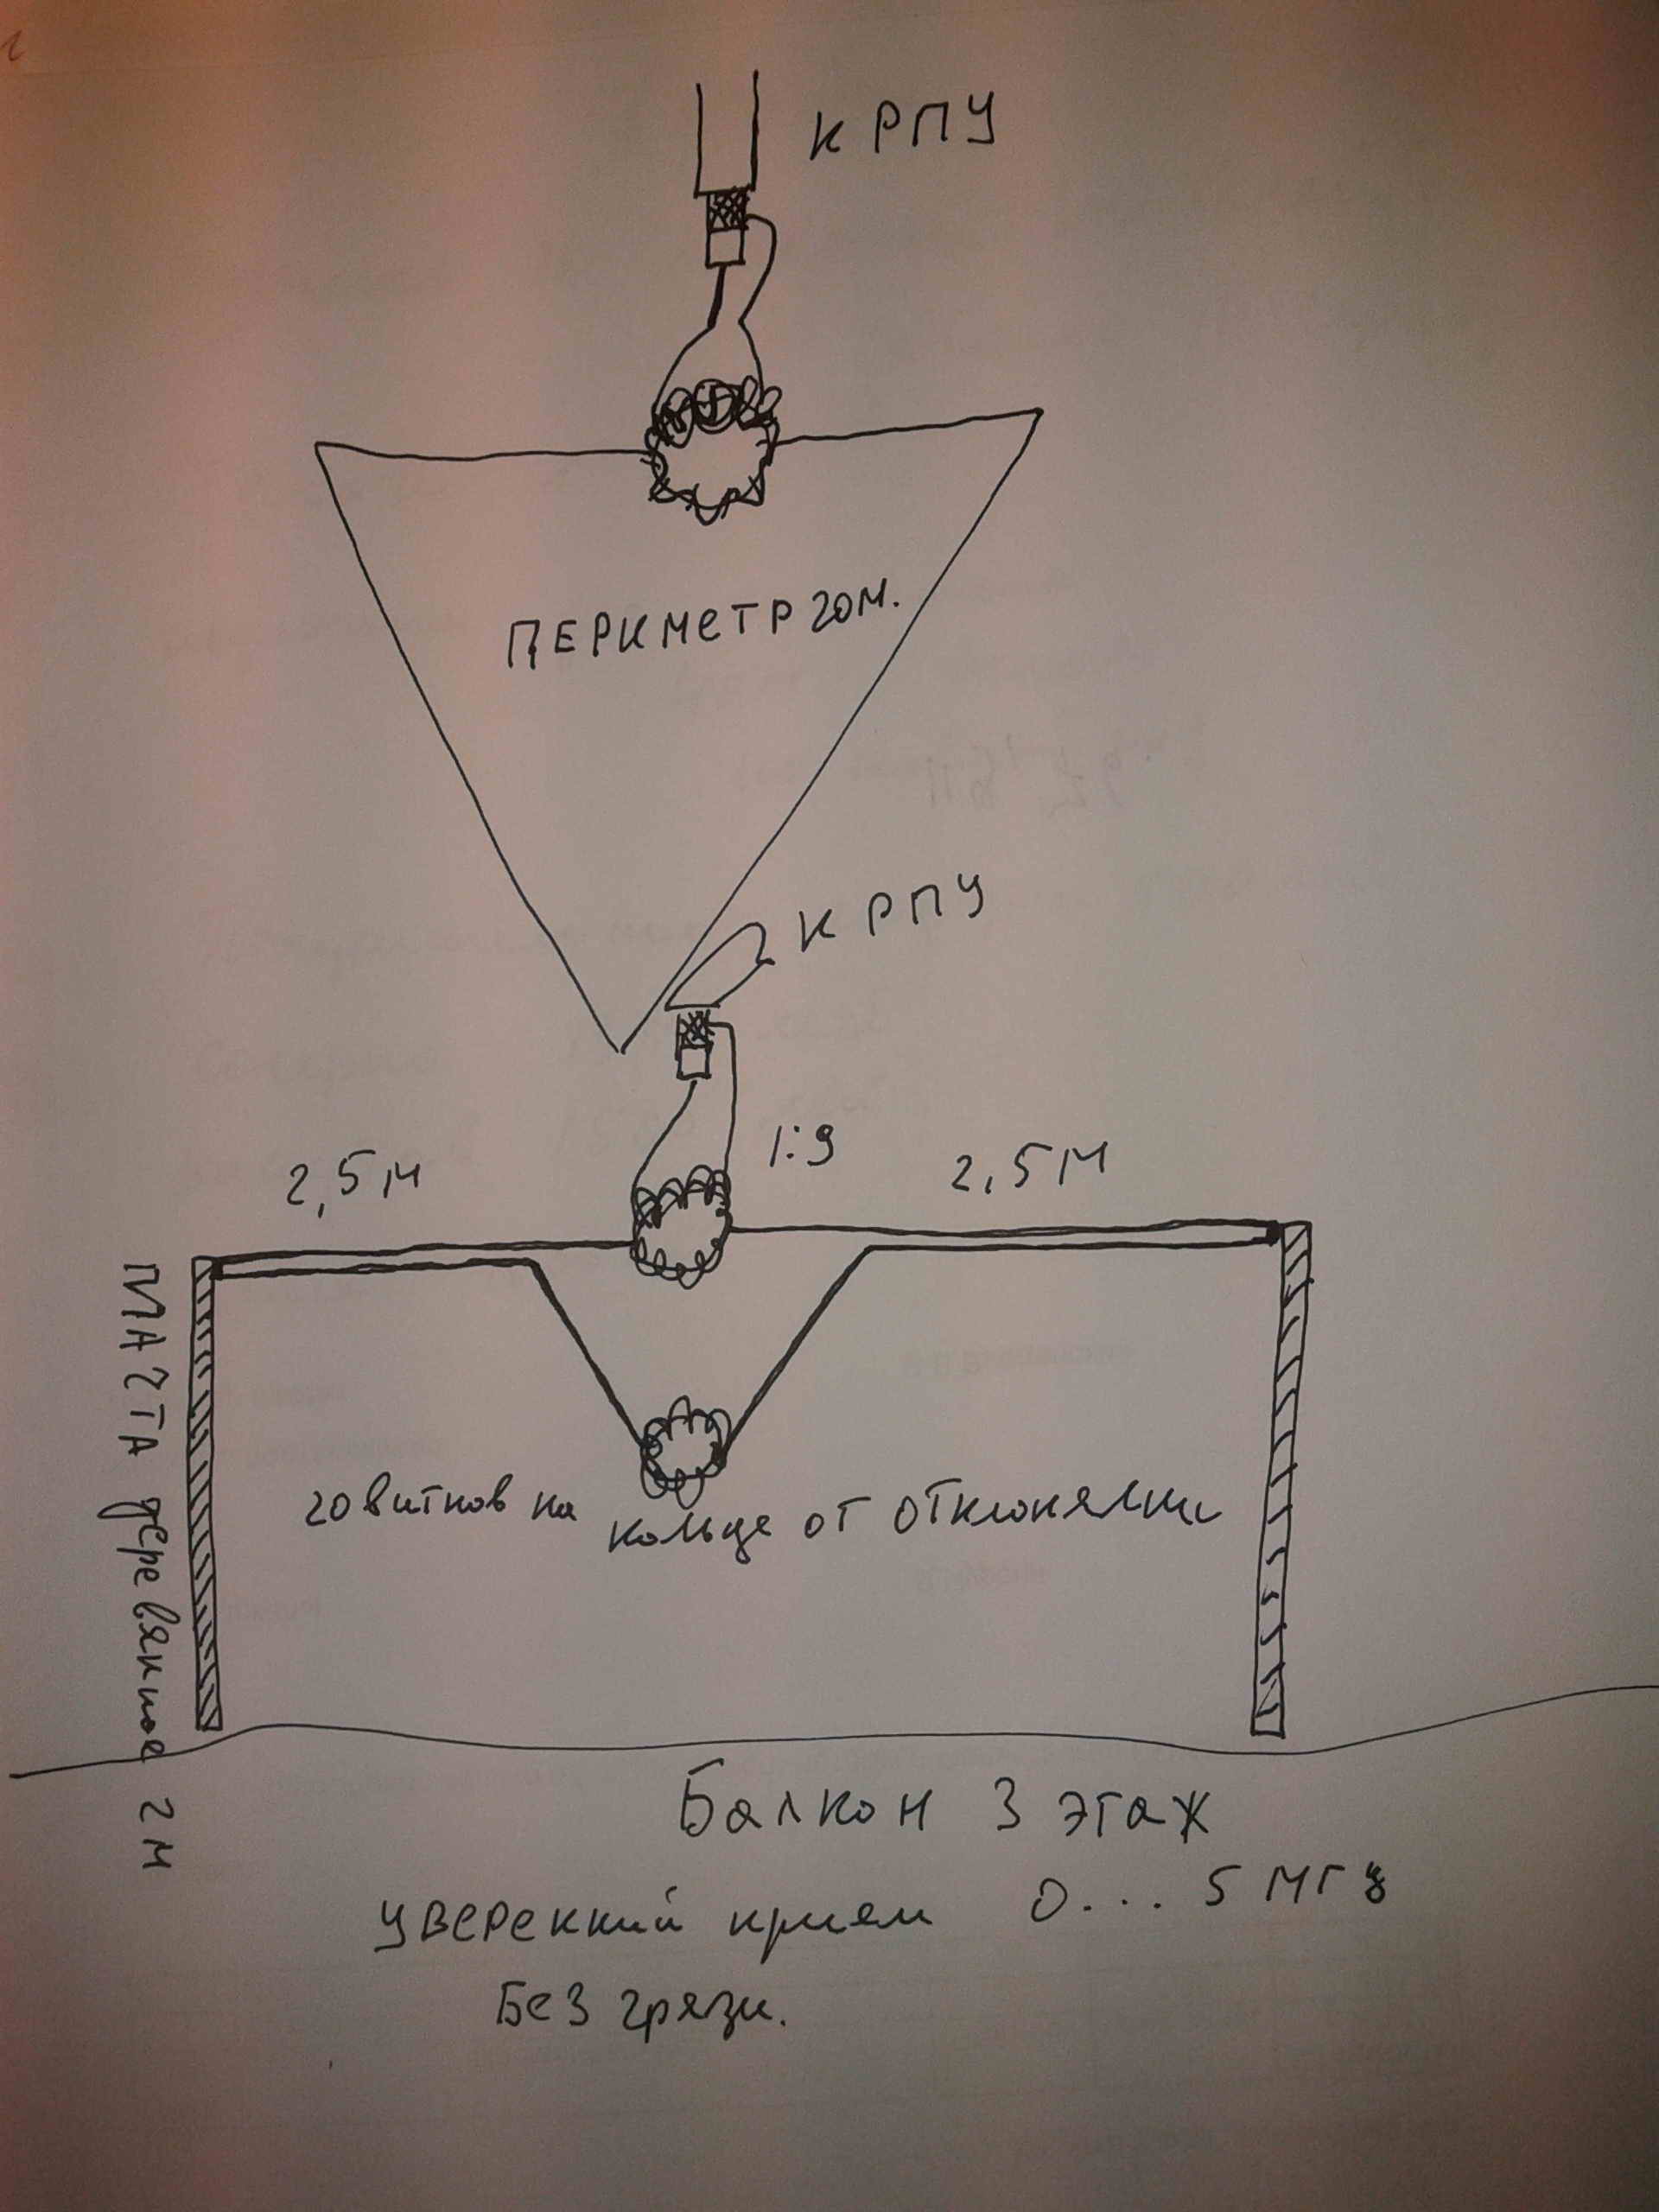 К РПУ
ПЕРИМЕТР 20М.
К РПУ
1:9
2,5 М
2,5 М
МАЧТА деревянное 2 М
20 витков на кольце от отклонялки
Балкон 3 этаж
уверенный прием 0... 5 МГц
Без грязи.